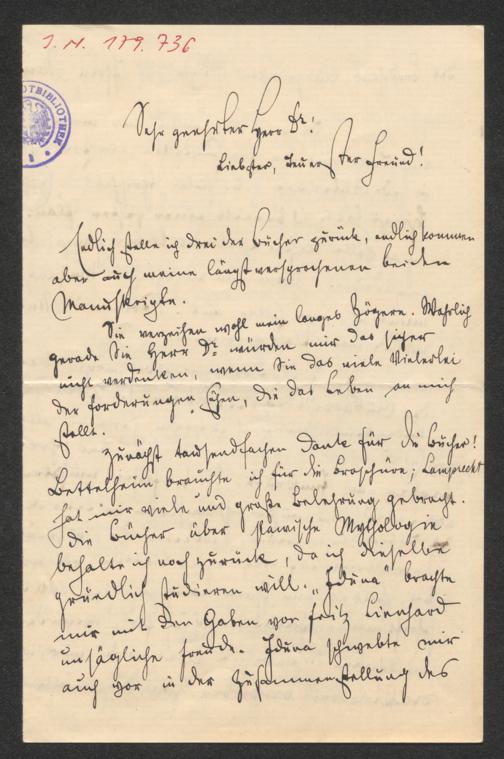 J. N. 179.736
STADTBIBLIOTHEK
Sehr geehrter Herr Dr!
Liebster, teuerster Freund!
Endlich stelle ich drei der Bücher zurück, endlich kommen
aber auch meine längst versprochenen beiden
Manuskripte.
Sie verzeihen wohl mein langes Zögern. Wahrlich
gerade Sie Herr Dr würden mir das sicher
nicht verdenken, wenn Sie das viele Vielerlei
der Forderungen sähen, die das Leben an mich
stellt.
Zunächst tausendfachen Dank für die Bücher!
Bettelheim brauchte ich für die Broschüre; Lamprecht
hat mir viele und große Belehrung gebracht.
Die Bücher über slawische Mythologie
behalte ich noch zurück, da ich dieselbe
gründlich studieren will. „Iduna" brachte
mir mit den Gaben von Fritz Lienhard
unsägliche Freude. Iduna schwebte mir
auch vor in der Zusammenstellung des